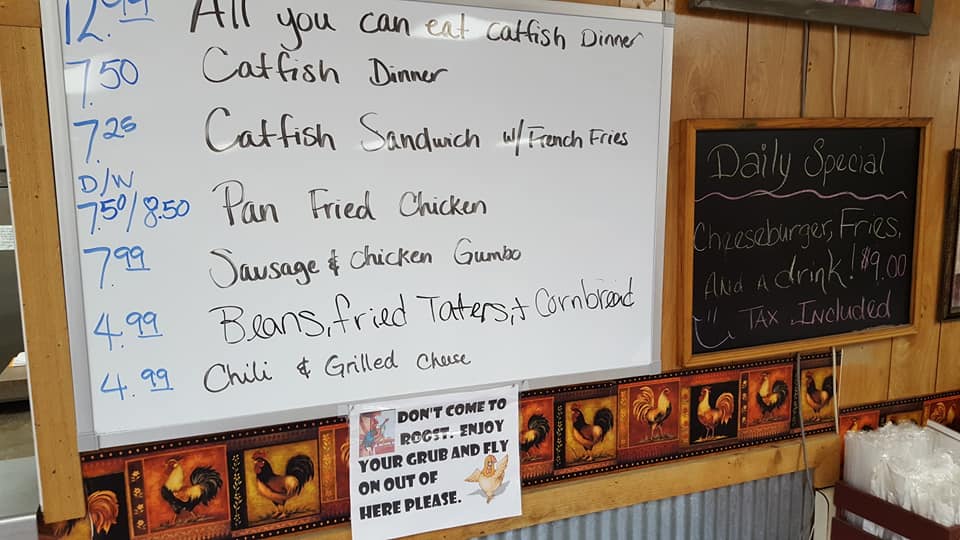 12.99 All you can eat catfish Dinner
7.50 Catfish Dinner
7.25 Catfish Sandwich w/ French Fries
D/W
7.50/8.50 Pan Fried Chicken
7.99 Sausage & chicken Gumbo
4.99 Beans, fried Taters, + Cornbread
4.99 Chili & Grilled Cheese
Daily Special
Cheeseburger, Fries,
And a drink! $9.00
Tax Included
DON'T COME TO
ROOST. ENJOY
YOUR GRUB AND FLY
ON OUT OF
HERE PLEASE.